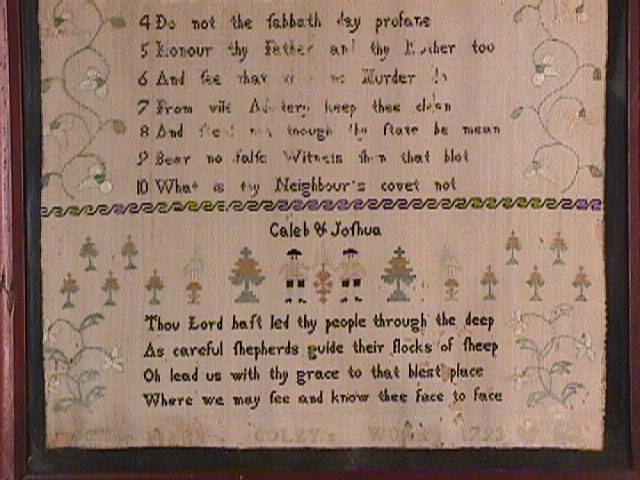 4 Do not the ſabbath day profane
5 Honour thy Father and thy Mother too
6 And ſee that no Murder do
7 From vile Adultery keep thee clean
8 And though thy ſtate be mean
9 Bear no falſe Witneſs ſhun that blot
10 What is thy Neighbour's covet not
Caleb & Joſhua
Thou Lord haſt led thy people through the deep
As careful ſhepherds guide their flocks of ſheep
Oh lead us with thy grace to that bleſt place
Where we may ſee and know thee face to face
COLEY's WORK 1793